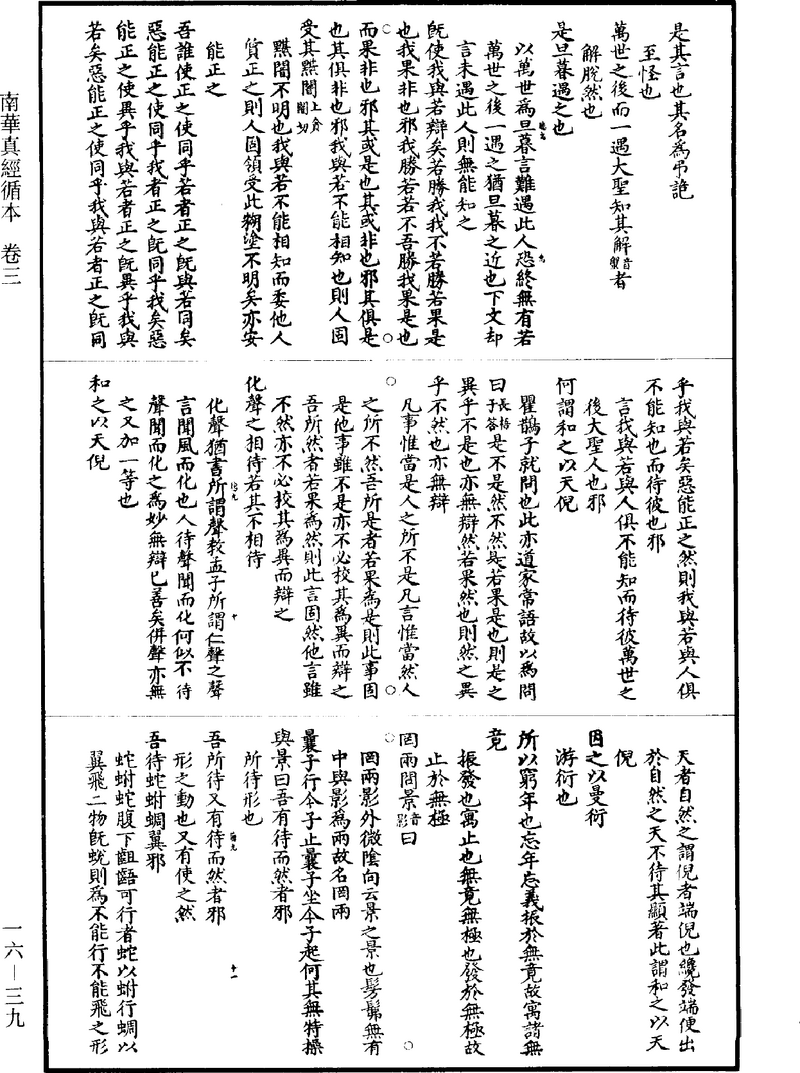 是其言也其名為弔詭
至怪也
萬世之後而一遇大聖知其解音蟹者
解脫然也
是旦暮遇之也
以萬世為旦暮言難遇此人恐終無有若
萬世之後一遇之猶旦暮之近也下文却
言未遇此人則無能知之
既使我與若辯矣若勝我我不若勝若果是
也我果非也邪我勝若若不吾勝我果是也
而果非也邪其或是也其或非也邪其俱是
也其俱非也邪我與若不能相知也則人固
受其黮闇上貪闇切
黮闇不明也我與若不能相知而委他人
質正之則人固領受此糊塗不明矣亦安
能正之
吾誰使正之使同乎若者正之既與若同矣
惡能正之使同乎我者正之既同乎我矣惡
能正之使異乎我與若者正之既異乎我與
若矣惡能正之使同乎我與若者正之既同
乎我與若矣惡能正之然則我與若與人俱
不能知也而待彼也邪
言我與若與人俱不能知而待彼萬世之
後大聖人也邪
何謂和之以天倪
瞿鵲子就問也此亦道家常語故以為問
曰長梧子答是不是然不然是若果是也則是之
異乎不是也亦無辯然若果然也則然之異
乎不然也亦無辯
凡事惟當是人之所不是凡言惟當然人
之所不然吾所是者若果為是則此事固
是他事雖不是亦不必校其為異而辯之
吾所然者若果為然則此言固然他言雖
不然亦不必校其為異而辯之
化聲之相待若其不相待
化聲猶書所謂聲教孟子所謂仁聲之聲
言聞風而化也人待聲聞而化何似不待
聲聞而化之為妙無辯已善矣併聲亦無
之又加一等也
和之以天倪
天者自然之謂倪者端倪也纔發端便出
於自然之天不待其顯著此謂和之以天
倪
因之以曼衍
游衍也
所以窮年也忘年忘義振於無竟故寓諸無
竟
振發也寓止也無竟無極也發於無極故
止於無極
罔兩問景音影曰
罔兩影外微陰向云景之景也髣髴無有
中與影為兩故名罔兩
曩子行今子止曩子坐今子起何其無特操
與景曰吾有待而然者邪
所待形也
吾所待又有待而然者邪
形之動也又有使之然
吾待蛇蚹蜩翼邪
蛇蚹蛇腹下齟齬可行者蛇以蚹行蜩以
翼飛二物既蛻則為不能行不能飛之形
南華真經循本 卷三
一六—三九